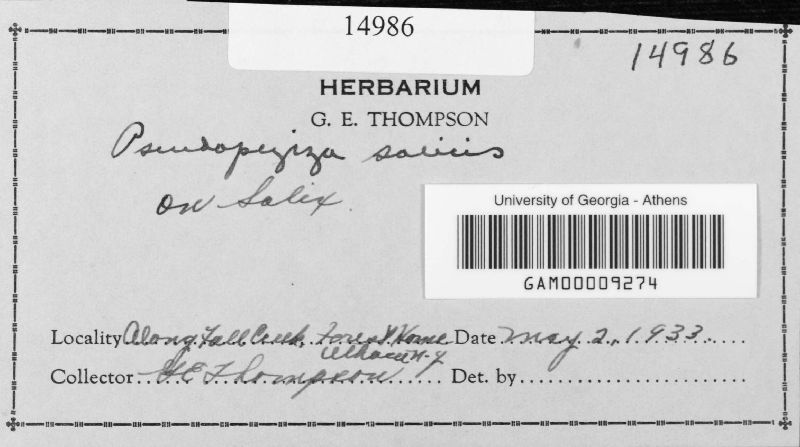 14986
14986
HERBARIUM
G. E. THOMPSON
Pseudopeziza salicis
on Salix.
University of Georgia - Athens
GAM00009274
Locality Along Fall Creek, Forest Home Date May 2, 1933
Ithaca N-Y
Collector G E Thompson Det. by